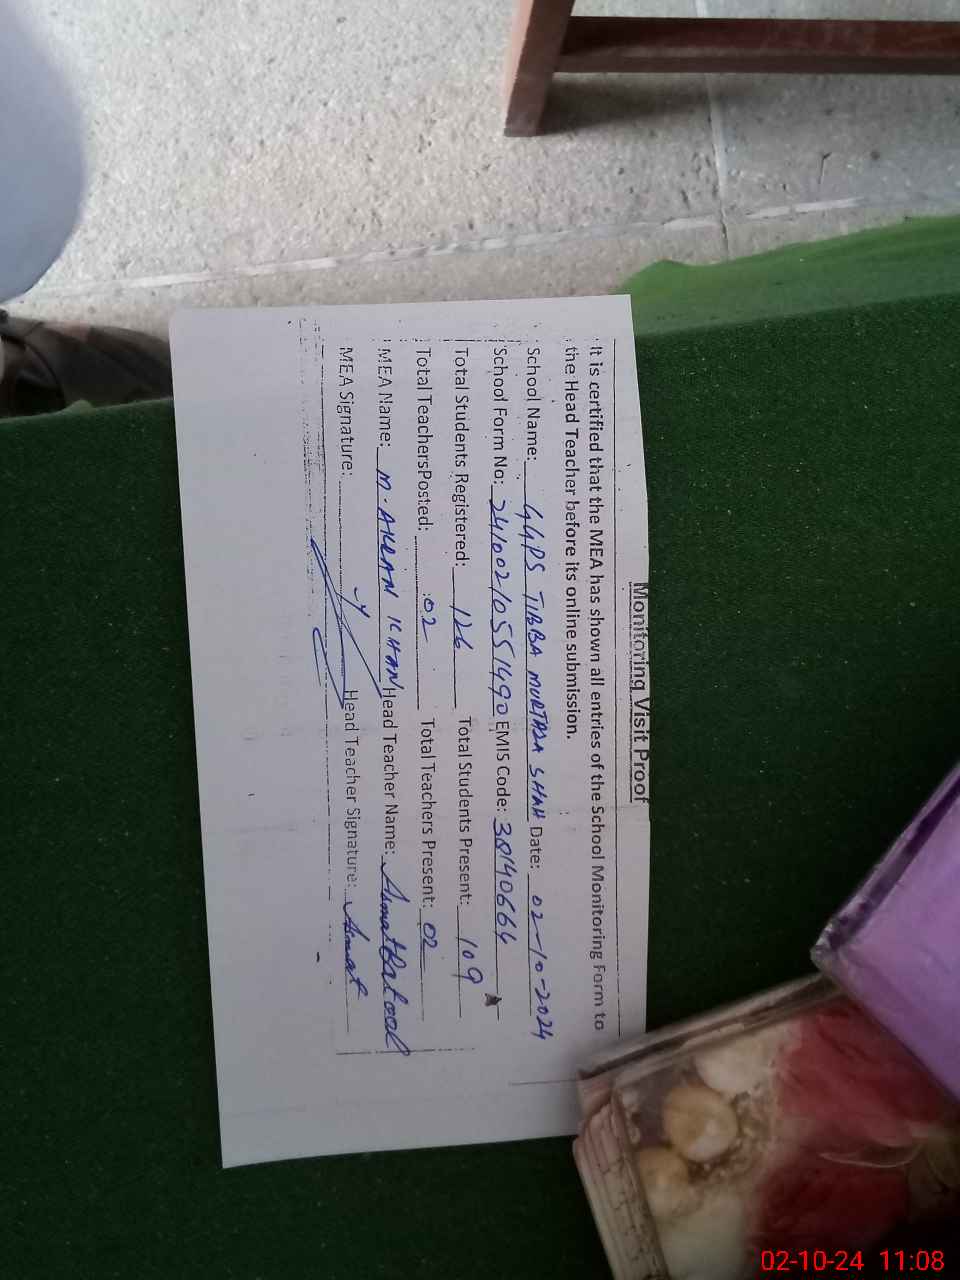 Monitoring Visit Proof
It is certified that the MEA has shown all entries of the School Monitoring Form to
the Head Teacher before its online submission.
School Name: GGPS TIBBA MURTAZA SHAH Date: 02-10-2024
School Form No: 24100210551490 EMIS Code: 38140664
Total Students Registered: 126 Total Students Present: 109
Total TeachersPosted: 02 Total Teachers Present: 02
MEA Name: M. AKRAM KHAN Head Teacher Name: Asmat Batool
MEA Signature: Head Teacher Signature: Asmat
02-10-24 11:08